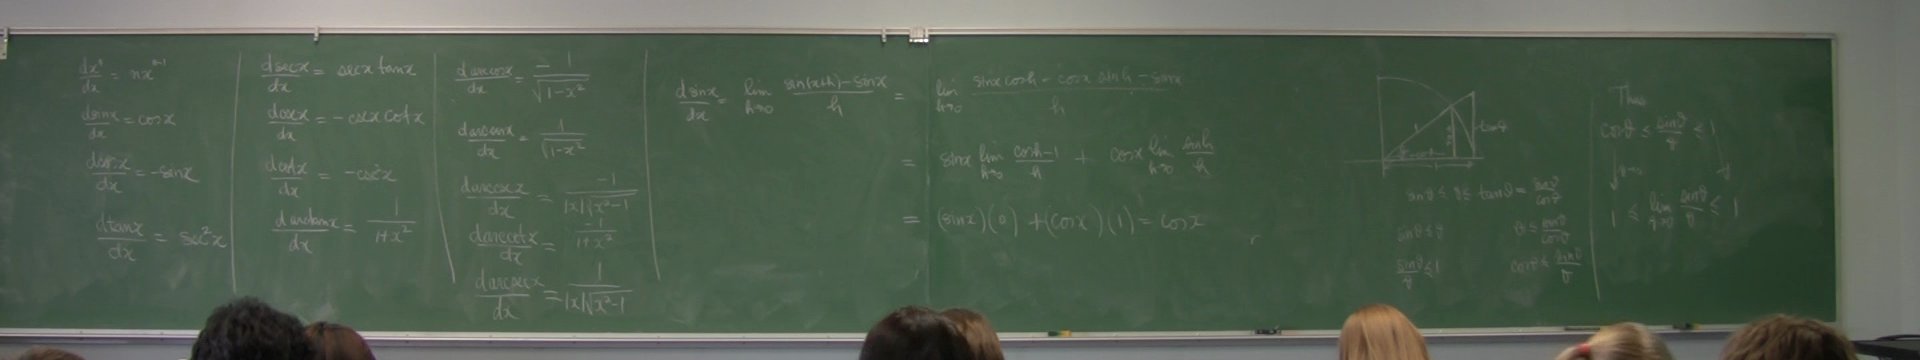 dxⁿ/dx = nxⁿ⁻¹
dsinx/dx = cosx
dcosx/dx = -sinx
dtanx/dx = sec²x
dsecx/dx = secx tanx
dcscx/dx = -cscx cotx
dcotx/dx = -csc²x
darctanx/dx = 1/(1+x²)
darccosx/dx = -1/√(1-x²)
darcsinx/dx = 1/√(1-x²)
darccscx/dx = -1/(|x|√(x²-1))
darccotx/dx = -1/(1+x²)
darcsecx/dx = 1/(|x|√(x²-1))
dsinx/dx = lim h→0 (sin(x+h)-sinx)/h = lim h→0 (sinx cosh - cosx sinh - sinx)/h
= sinx lim h→0 (cosh-1)/h + cosx lim h→0 sinh/h
= (sinx)(0) + (cosx)(1) = cosx
1
tanθ
sinθ ≤ θ ≤ tanθ = sinθ/cosθ
sinθ ≤ θ
θ ≤ sinθ/cosθ
sinθ/θ ≤ 1
cosθ ≤ sinθ/θ
Thus
cosθ ≤ sinθ/θ ≤ 1
1 ≤ lim θ→0 sinθ/θ ≤ 1